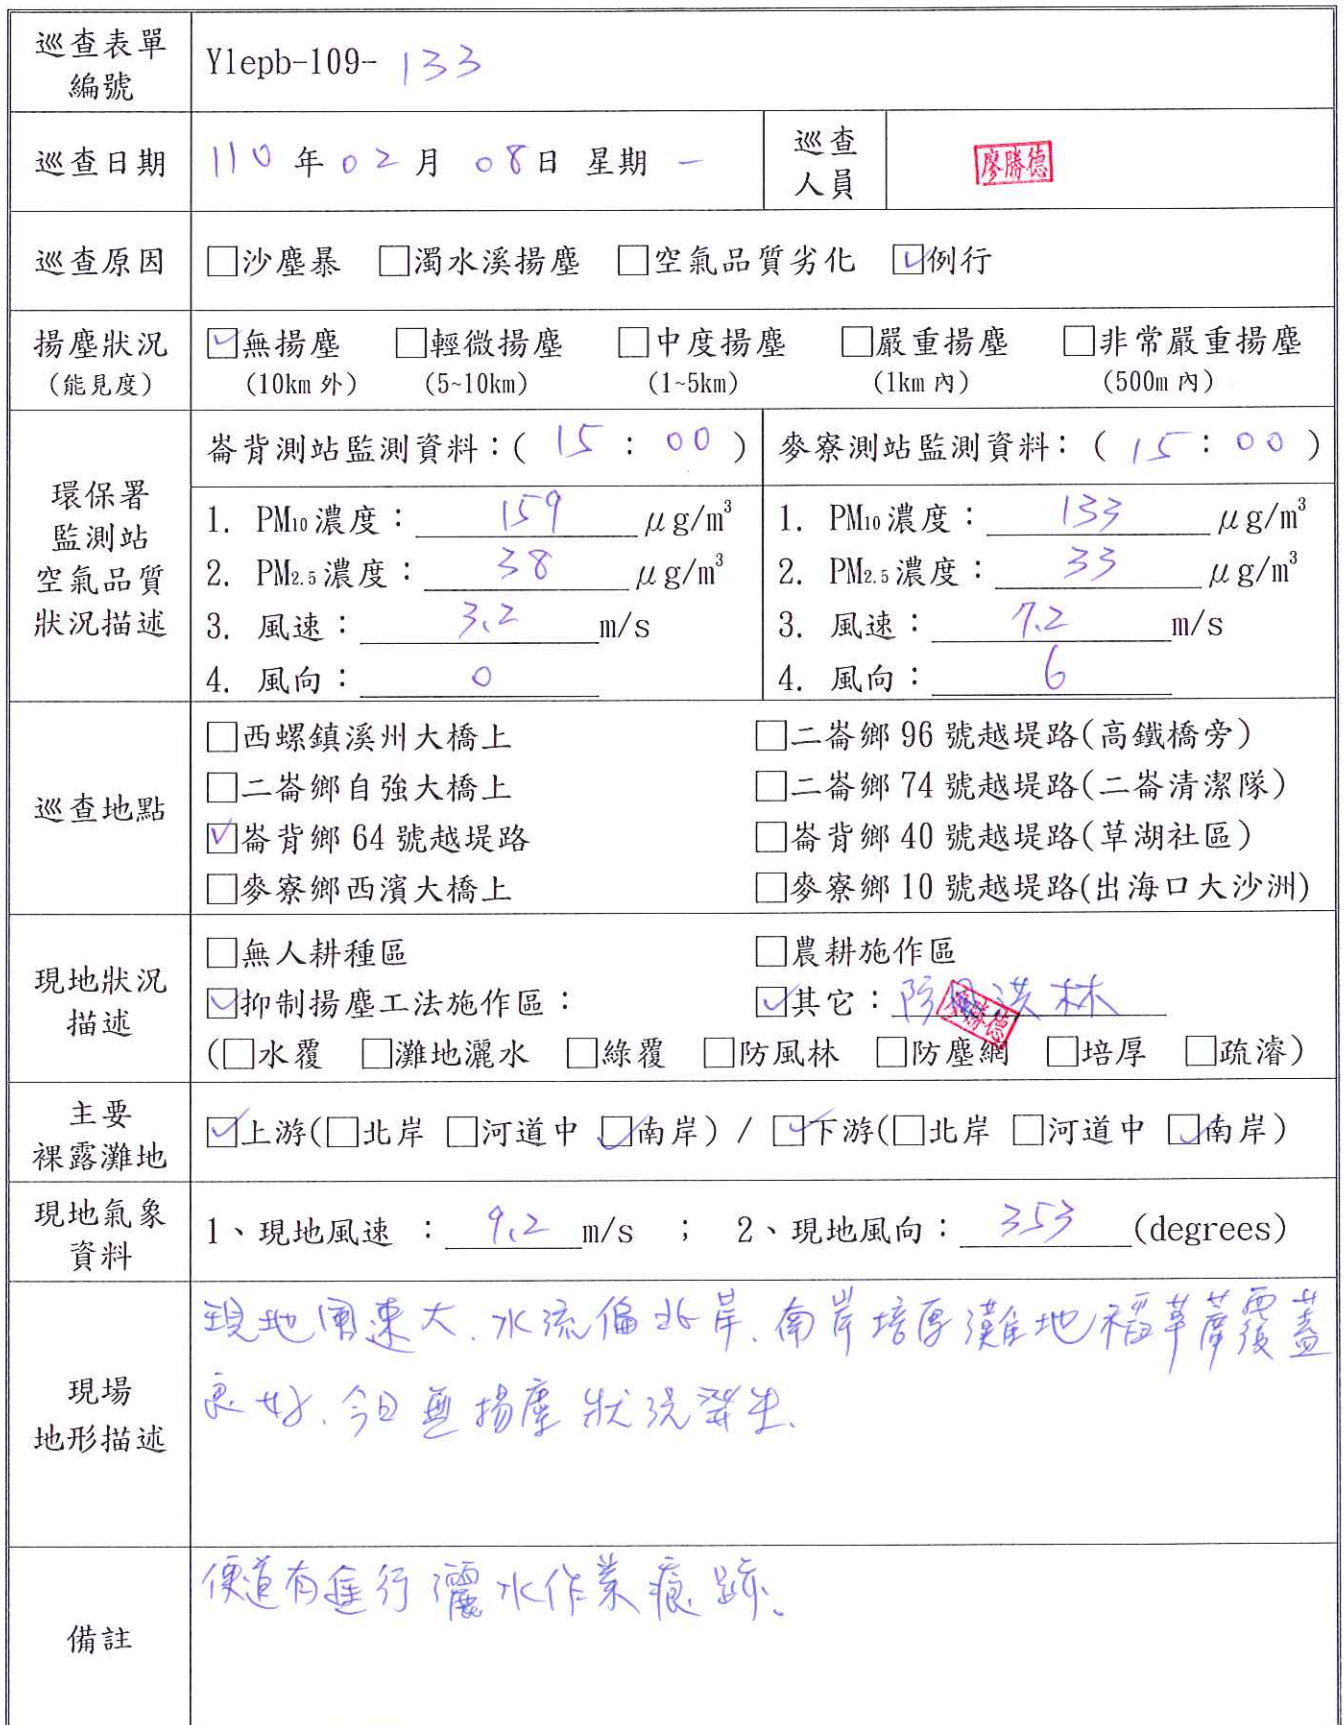 巡查表單
編號
Ylepb-109-133
巡查日期
110年02月08日 星期一
巡查
人員
廖勝德
巡查原因
□沙塵暴 □濁水溪揚塵 □空氣品質劣化 ☑例行
揚塵狀況
(能見度)
☑無揚塵 □輕微揚塵 □中度揚塵 □嚴重揚塵 □非常嚴重揚塵
(10km 外) (5~10km) (1~5km) (1km 內) (500m 內)
環保署
監測站
空氣品質
狀況描述
崙背測站監測資料：( 15 : 00 )
1. PM10濃度：159 μg/m³
2. PM2.5濃度：38 μg/m³
3. 風速：3.2 m/s
4. 風向：0
麥寮測站監測資料：( 15 : 00 )
1. PM10濃度：133 μg/m³
2. PM2.5濃度：33 μg/m³
3. 風速：7.2 m/s
4. 風向：6
巡查地點
□西螺鎮溪州大橋上 □二崙鄉 96 號越堤路(高鐵橋旁)
□二崙鄉自強大橋上 □二崙鄉 74 號越堤路(二崙清潔隊)
☑崙背鄉 64 號越堤路 □崙背鄉 40 號越堤路(草湖社區)
□麥寮鄉西濱大橋上 □麥寮鄉 10 號越堤路(出海口大沙洲)
現地狀況
描述
□無人耕種區 □農耕施作區
☑抑制揚塵工法施作區： ☑其它：防洪林
廖勝德
(□水覆 □灘地灑水 □綠覆 □防風林 □防塵網 □培厚 □疏濬)
主要
裸露灘地
☑上游(□北岸 □河道中 ☑南岸) / ☑下游(□北岸 □河道中 ☑南岸)
現地氣象
資料
1、現地風速 ：9.2 m/s ； 2、現地風向：353 (degrees)
現場
地形描述
現地風速大、水流偏北岸、南岸培厚灘地稻草蓆覆蓋
良好、今日無揚塵狀況發生、
備註
便道有進行灑水作業痕跡、